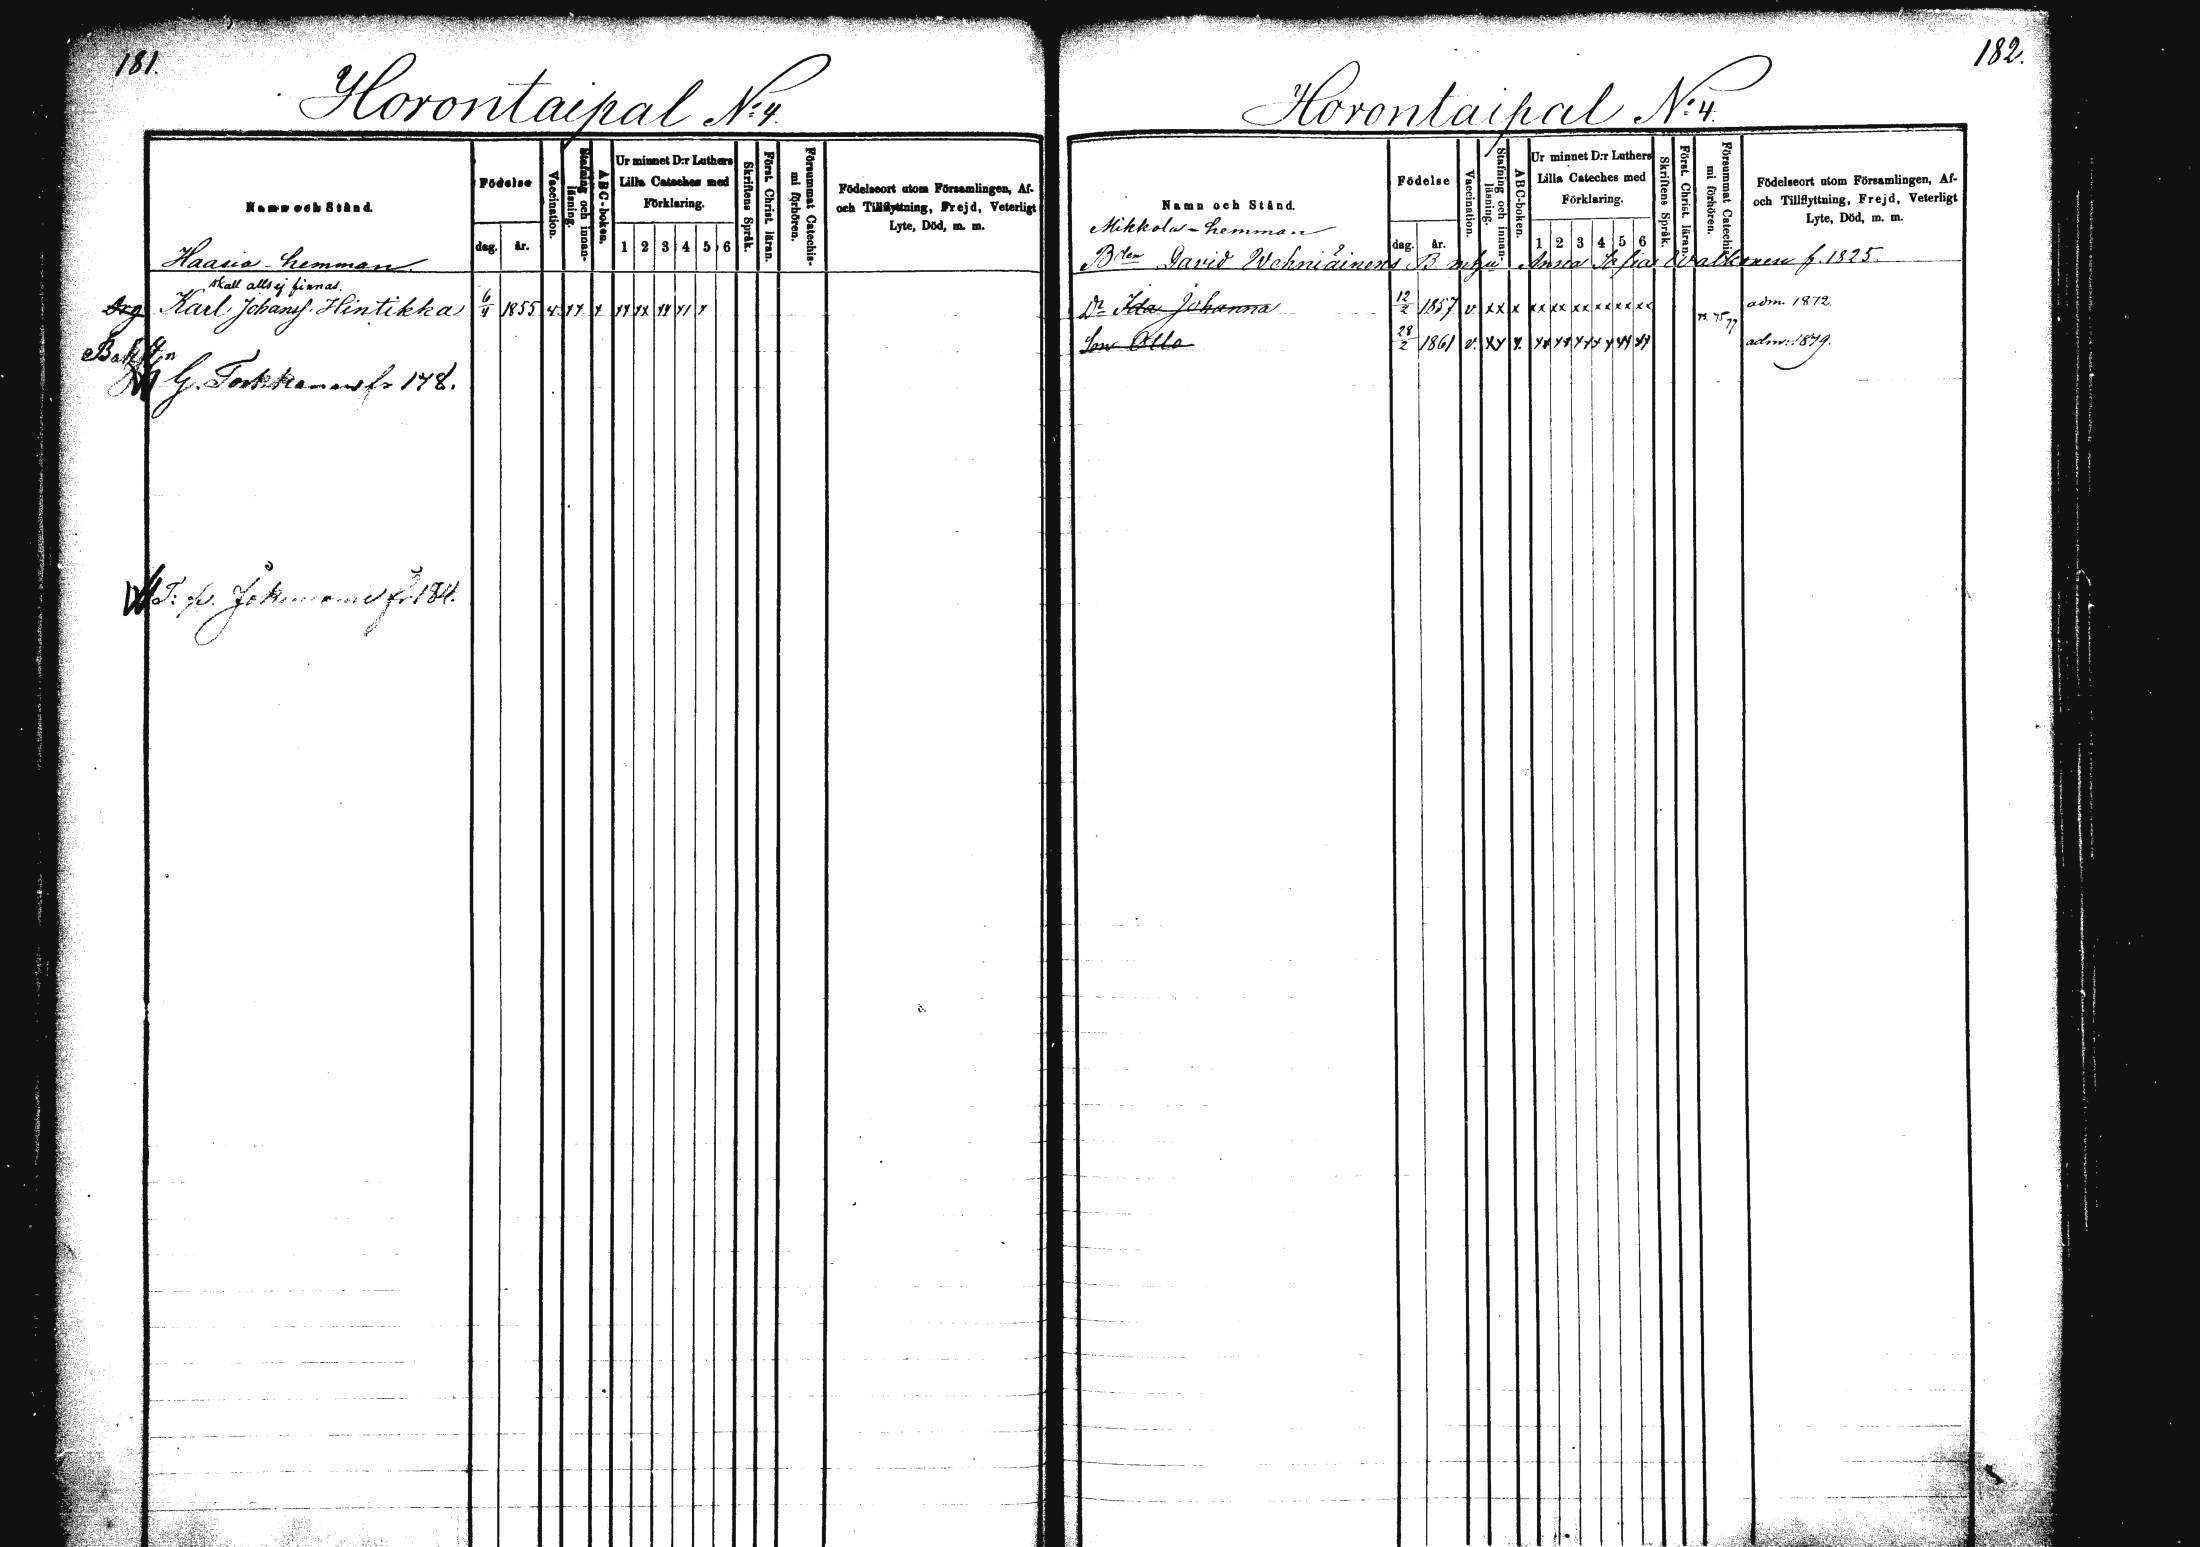 181.
Horontaipal N:o 4.
Namn och Stånd.
Födelse
dag. år.
Vaccination.
Stafning och innanläsning.
ABC-boken.
Ur minnet D:r Luthers
Lilla Cateches med
Förklaring.
1 2 3 4 5 6
Skriftens Språk.
Först. Christ. läran.
Försummat Catechismi förhören.
Födelseort utom Församlingen, Af-
och Tillflyttning, Frejd, Veterligt
Lyte, Död, m. m.
Haasia-hemman.
skall alls ej finnas.
Karl Johans. Hintikka 6/4 1855 v xx x xx xx xx xx x
G. Torkkanen fr 178.
fr 184.
182.
Horontaipal N:o 4.
Namn och Stånd.
Födelse
dag. år.
Vaccination.
Stafning och innanläsning.
ABC-boken.
Ur minnet D:r Luthers
Lilla Cateches med
Förklaring.
1 2 3 4 5 6
Skriftens Språk.
Först. Christ. läran.
Försummat Catechismi förhören.
Födelseort utom Församlingen, Af-
och Tillflyttning, Frejd, Veterligt
Lyte, Död, m. m.
Mikkola-hemman
Bden David Wehniäinens B Anna Sofia f. 1825.
Dr Ida Johanna 12/2 1857 v xx x xx xx xx xx xx xx 75 77 adm. 1872
Son Otto 28/2 1861 v. xx x. xx xx xx x xx xx adm: 1879.